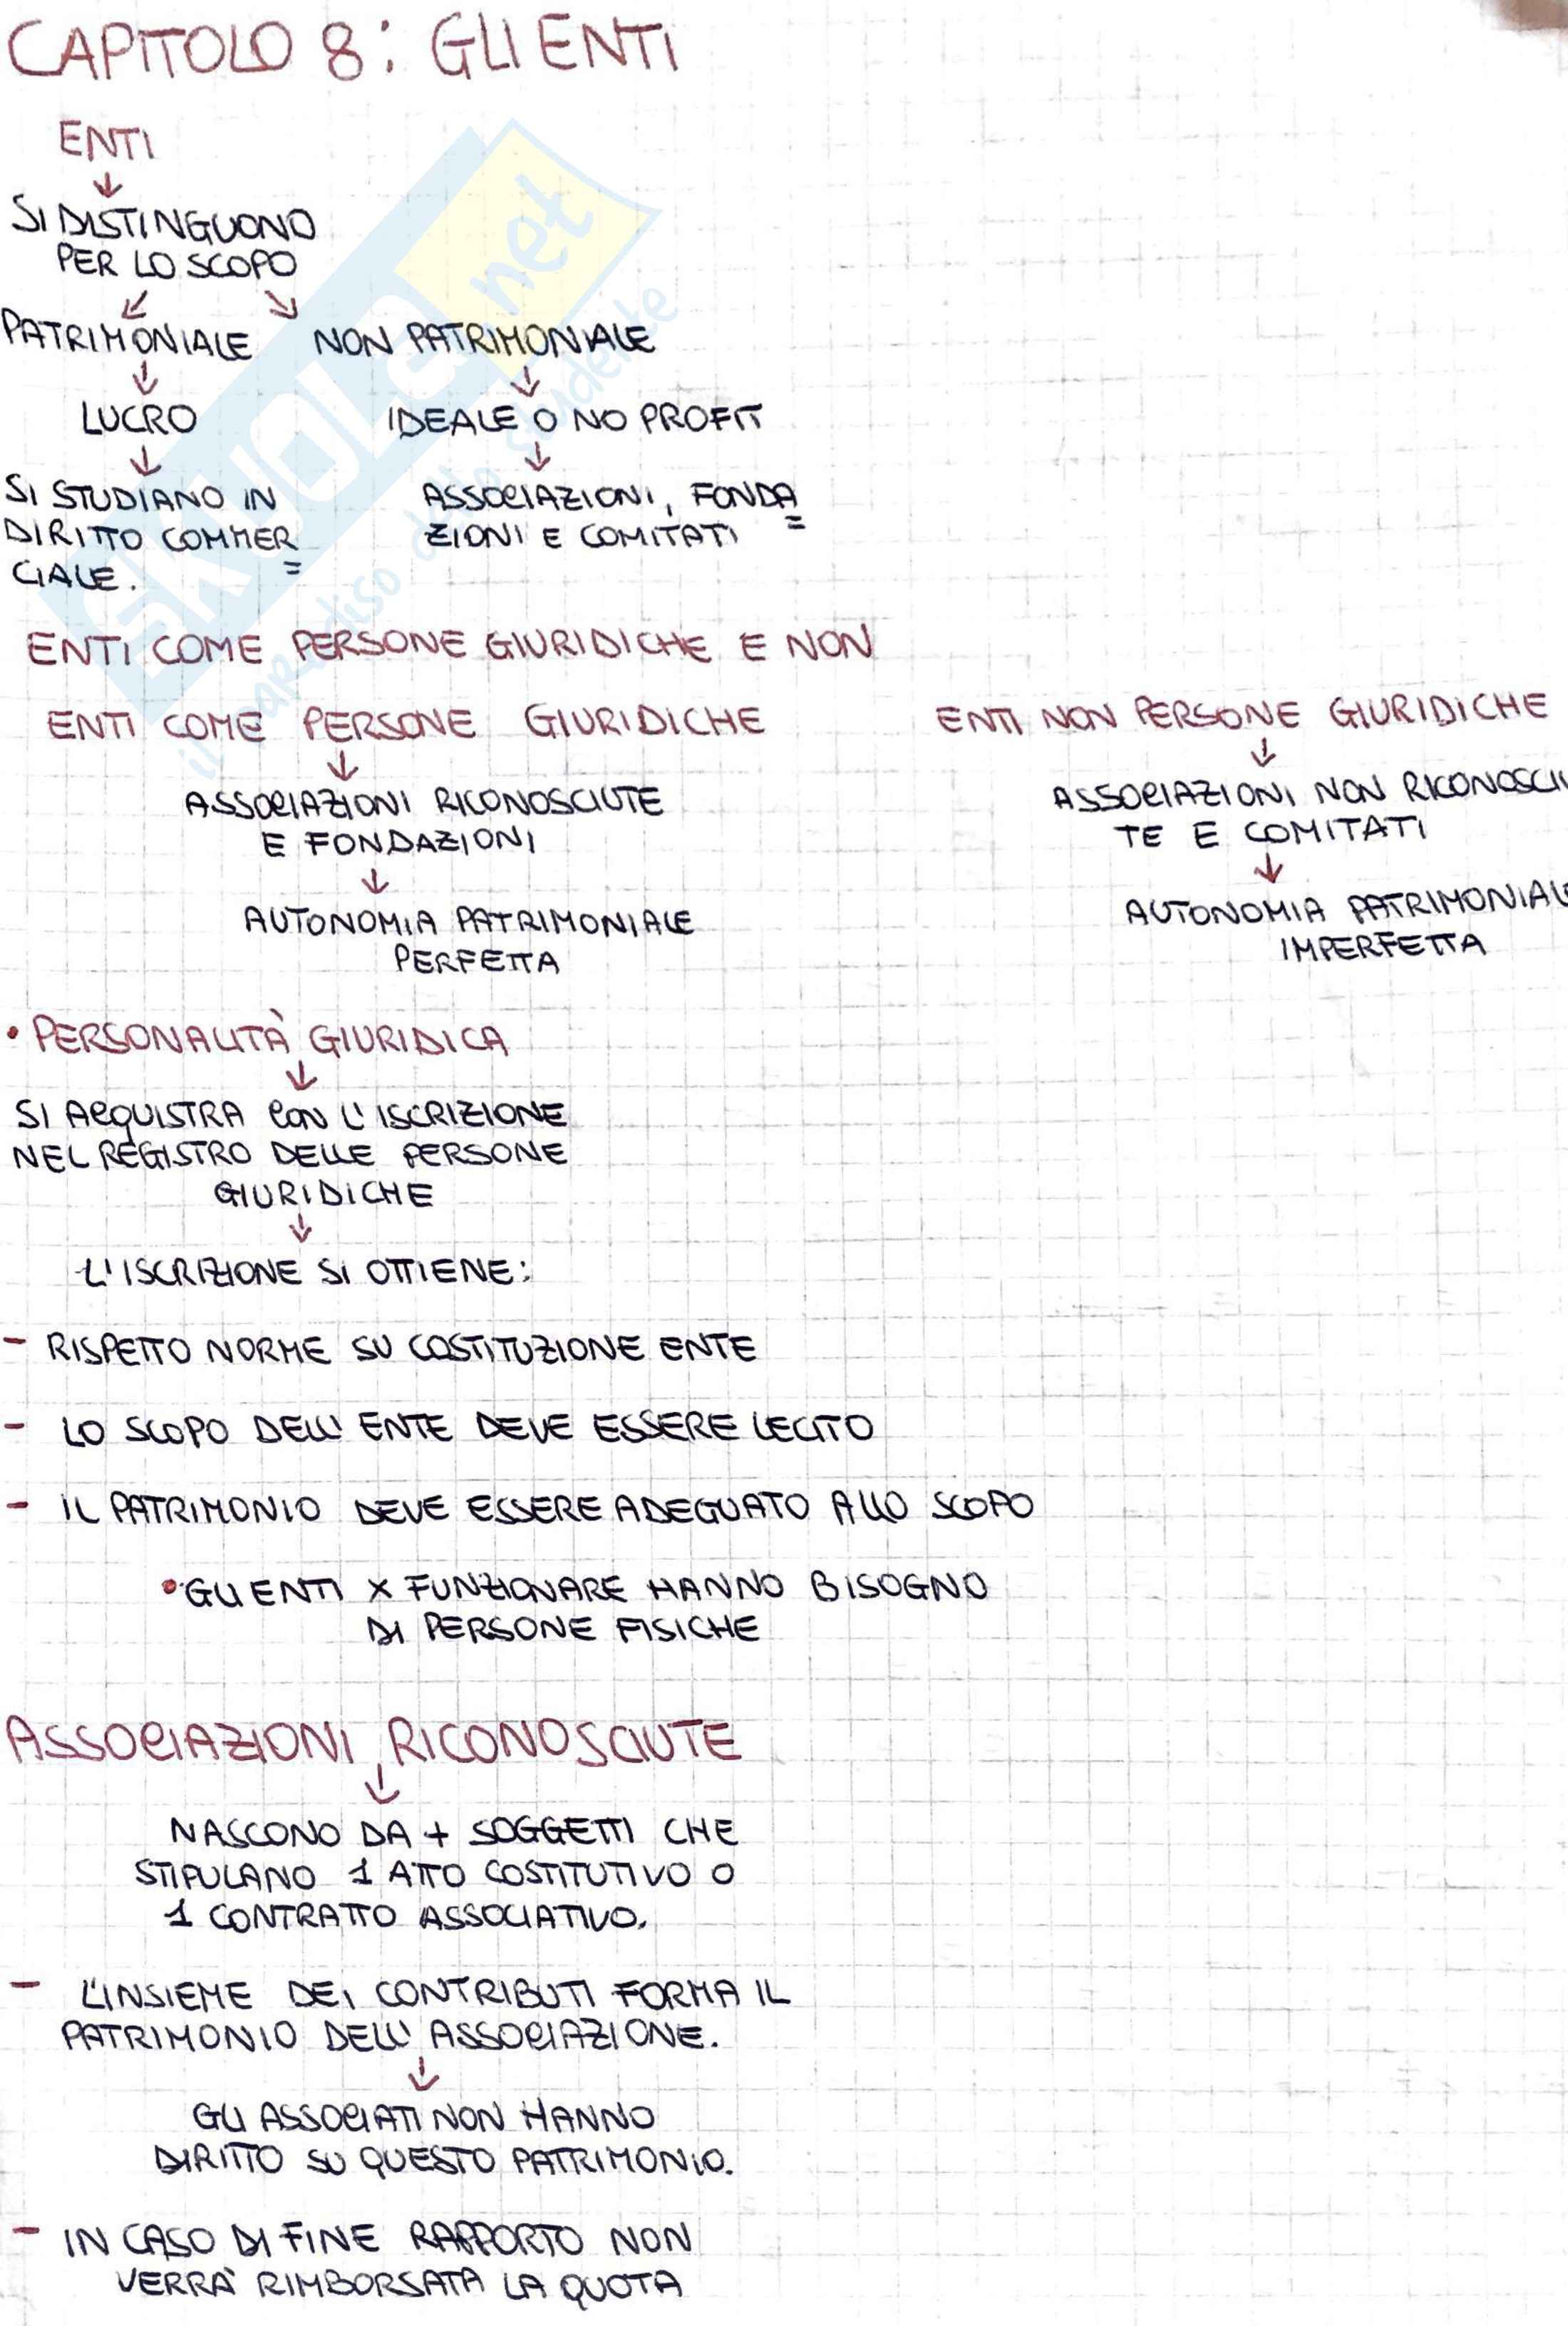 CAPITOLO 8: GLI ENTI
ENTI
↓
SI DISTINGUONO
PER LO SCOPO
↙ ↘
PATRIMONIALE NON PATRIMONIALE
↓ ↓
LUCRO IDEALE O NO PROFIT
↓ ↓
SI STUDIANO IN ASSOCIAZIONI, FONDA=
DIRITTO COMMER= ZIONI E COMITATI
CIALE.
ENTI COME PERSONE GIURIDICHE E NON
ENTI COME PERSONE GIURIDICHE ENTI NON PERSONE GIURIDICHE
↓ ↓
ASSOCIAZIONI RICONOSCIUTE ASSOCIAZIONI NON RICONOSCIU
E FONDAZIONI TE E COMITATI
↓ ↓
AUTONOMIA PATRIMONIALE AUTONOMIA PATRIMONIALE
PERFETTA IMPERFETTA
• PERSONALITÀ GIURIDICA
↓
SI ACQUISTRA CON L'ISCRIZIONE
NEL REGISTRO DELLE PERSONE
GIURIDICHE
↓
L'ISCRIZIONE SI OTTIENE:
- RISPETTO NORME SU COSTITUZIONE ENTE
- LO SCOPO DELL'ENTE DEVE ESSERE LECITO
- IL PATRIMONIO DEVE ESSERE ADEGUATO ALLO SCOPO
• GLI ENTI X FUNZIONARE HANNO BISOGNO
DI PERSONE FISICHE
ASSOCIAZIONI RICONOSCIUTE
↓
NASCONO DA + SOGGETTI CHE
STIPULANO 1 ATTO COSTITUTIVO O
1 CONTRATTO ASSOCIATIVO.
- L'INSIEME DEI CONTRIBUTI FORMA IL
PATRIMONIO DELL'ASSOCIAZIONE.
↓
GLI ASSOCIATI NON HANNO
DIRITTO SU QUESTO PATRIMONIO.
- IN CASO DI FINE RAPPORTO NON
VERRÀ RIMBORSATA LA QUOTA
SKUOLA.net
il paradiso dello studente